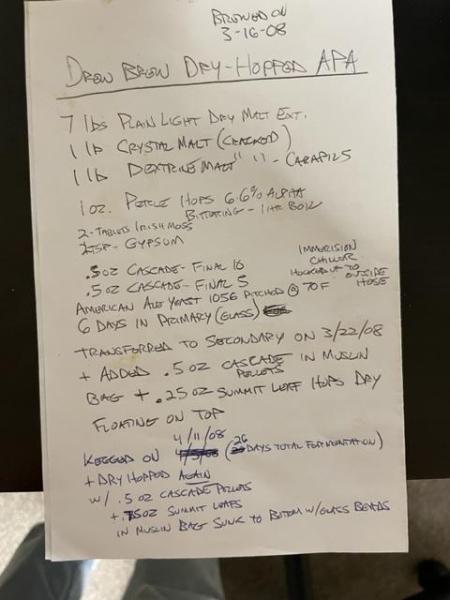 BREWED ON
3-16-08
DREW BREW DRY-HOPPED APA
7 lbs PLAIN LIGHT DRY MALT EXT.
1 lb CRYSTAL MALT (CRACKED)
1 lb DEXTRINE MALT " " - CARAPILS
1 oz. PERLE HOPS 6.6% ALPHA
BITTERING - 1 HR BOIL
2-TABLETS IRISH MOSS
2 TSP- GYPSUM
.5 OZ CASCADE- FINAL 10
.5 OZ CASCADE- FINAL 5
IMMERISION
CHILLER
HOOKED UP TO
OUTSIDE
HOSE
AMERICAN ALE YEAST 1056 PITCHED @ 70F
6 DAYS IN PRIMARY (GLASS)
TRANSFERRED TO SECONDARY ON 3/22/08
+ ADDED .5 OZ CASCADE PELLETS IN MUSLIN
BAG + .25 OZ SUMMIT LEAF HOPS DRY
FLOATING ON TOP
KEGGED ON 4/11/08 (26 DAYS TOTAL FERMENTATION)
+ DRY HOPPED AGAIN
W/ .5 OZ CASCADE PELLETS
+ OZ SUMMIT LEAFS
IN MUSLIN BAG SUNK TO BOTTOM W/GLASS BEADS